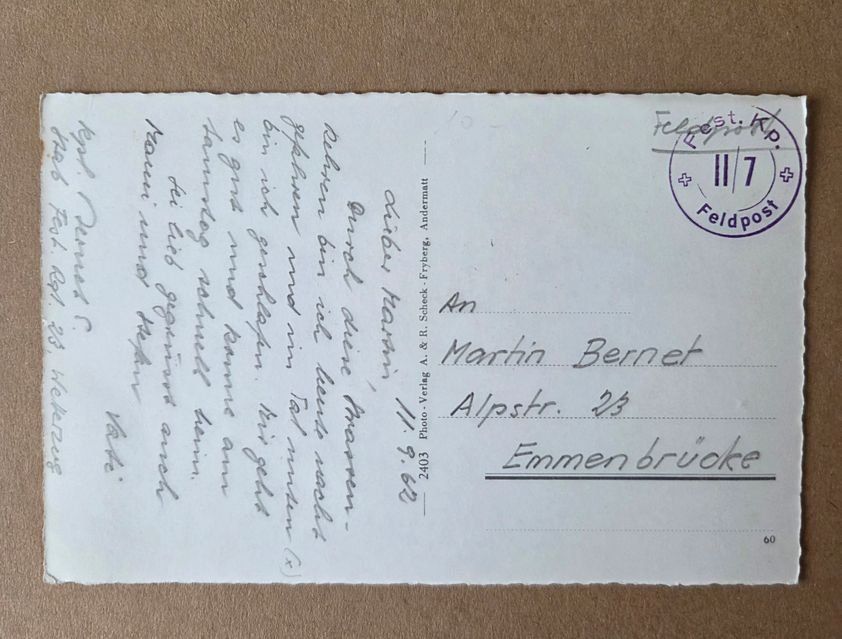 Lieber Martin, 11.9.62
Durch diese Strassen-
kehren bin ich heute nacht
gefahren und im Tal unten (x)
bin ich geschlafen. Mir geht
es gut und komme am
Samstag schnell heim.
Sei lieb gegrüsst auch
Mami und Stefan
Vati
Kpl. Bernet S.
Stab Fest Rgt 23,
2403 Photo-Verlag A. & R. Scheck-Fryberg, Andermatt
Feldpost
Fest. Kp.
II/7
Feldpost
An
Martin Bernet
Alpstr. 23
Emmenbrücke
60